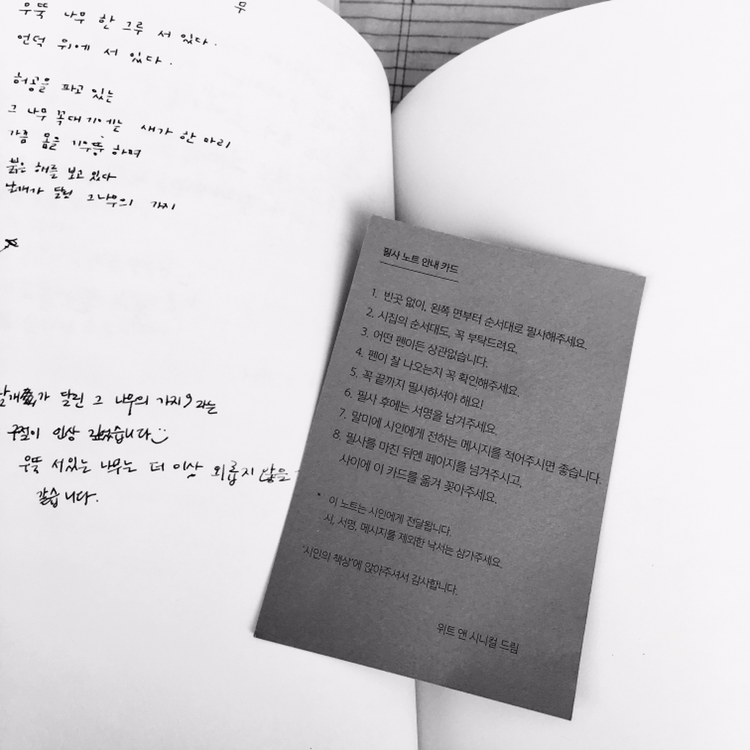 무
우뚝 나무 한 그루 서 있다.
언덕 위에 서 있다.
허공을 파고 있는
그 나무 꼭대기에는 새가 한 마리
가끔 몸을 기우뚱 하며
붉은 해를 보고 있다
날개가 달린 그 나무의 가지
날개가 달린 그 나무의 가지 라는
구절이 인상 깊었습니다
우뚝 서있는 나무는 더 이상 외롭지 않을
같습니다.
필사 노트 안내 카드
1. 빈곳 없이, 왼쪽 면부터 순서대로 필사해주세요.
2. 시집의 순서대로, 꼭 부탁드려요.
3. 어떤 펜이든 상관없습니다.
4. 펜이 잘 나오는지 꼭 확인해주세요.
5. 꼭 끝까지 필사하셔야 해요!
6. 필사 후에는 서명을 남겨주세요.
7. 말미에 시인에게 전하는 메시지를 적어주시면 좋습니다.
8. 필사를 마친 뒤엔 페이지를 넘겨주시고,
사이에 이 카드를 옮겨 꽂아주세요.
* 이 노트는 시인에게 전달됩니다.
시, 서명, 메시지를 제외한 낙서는 삼가주세요.
'시인의 책상'에 앉아주셔서 감사합니다.
위트 앤 시니컬 드림